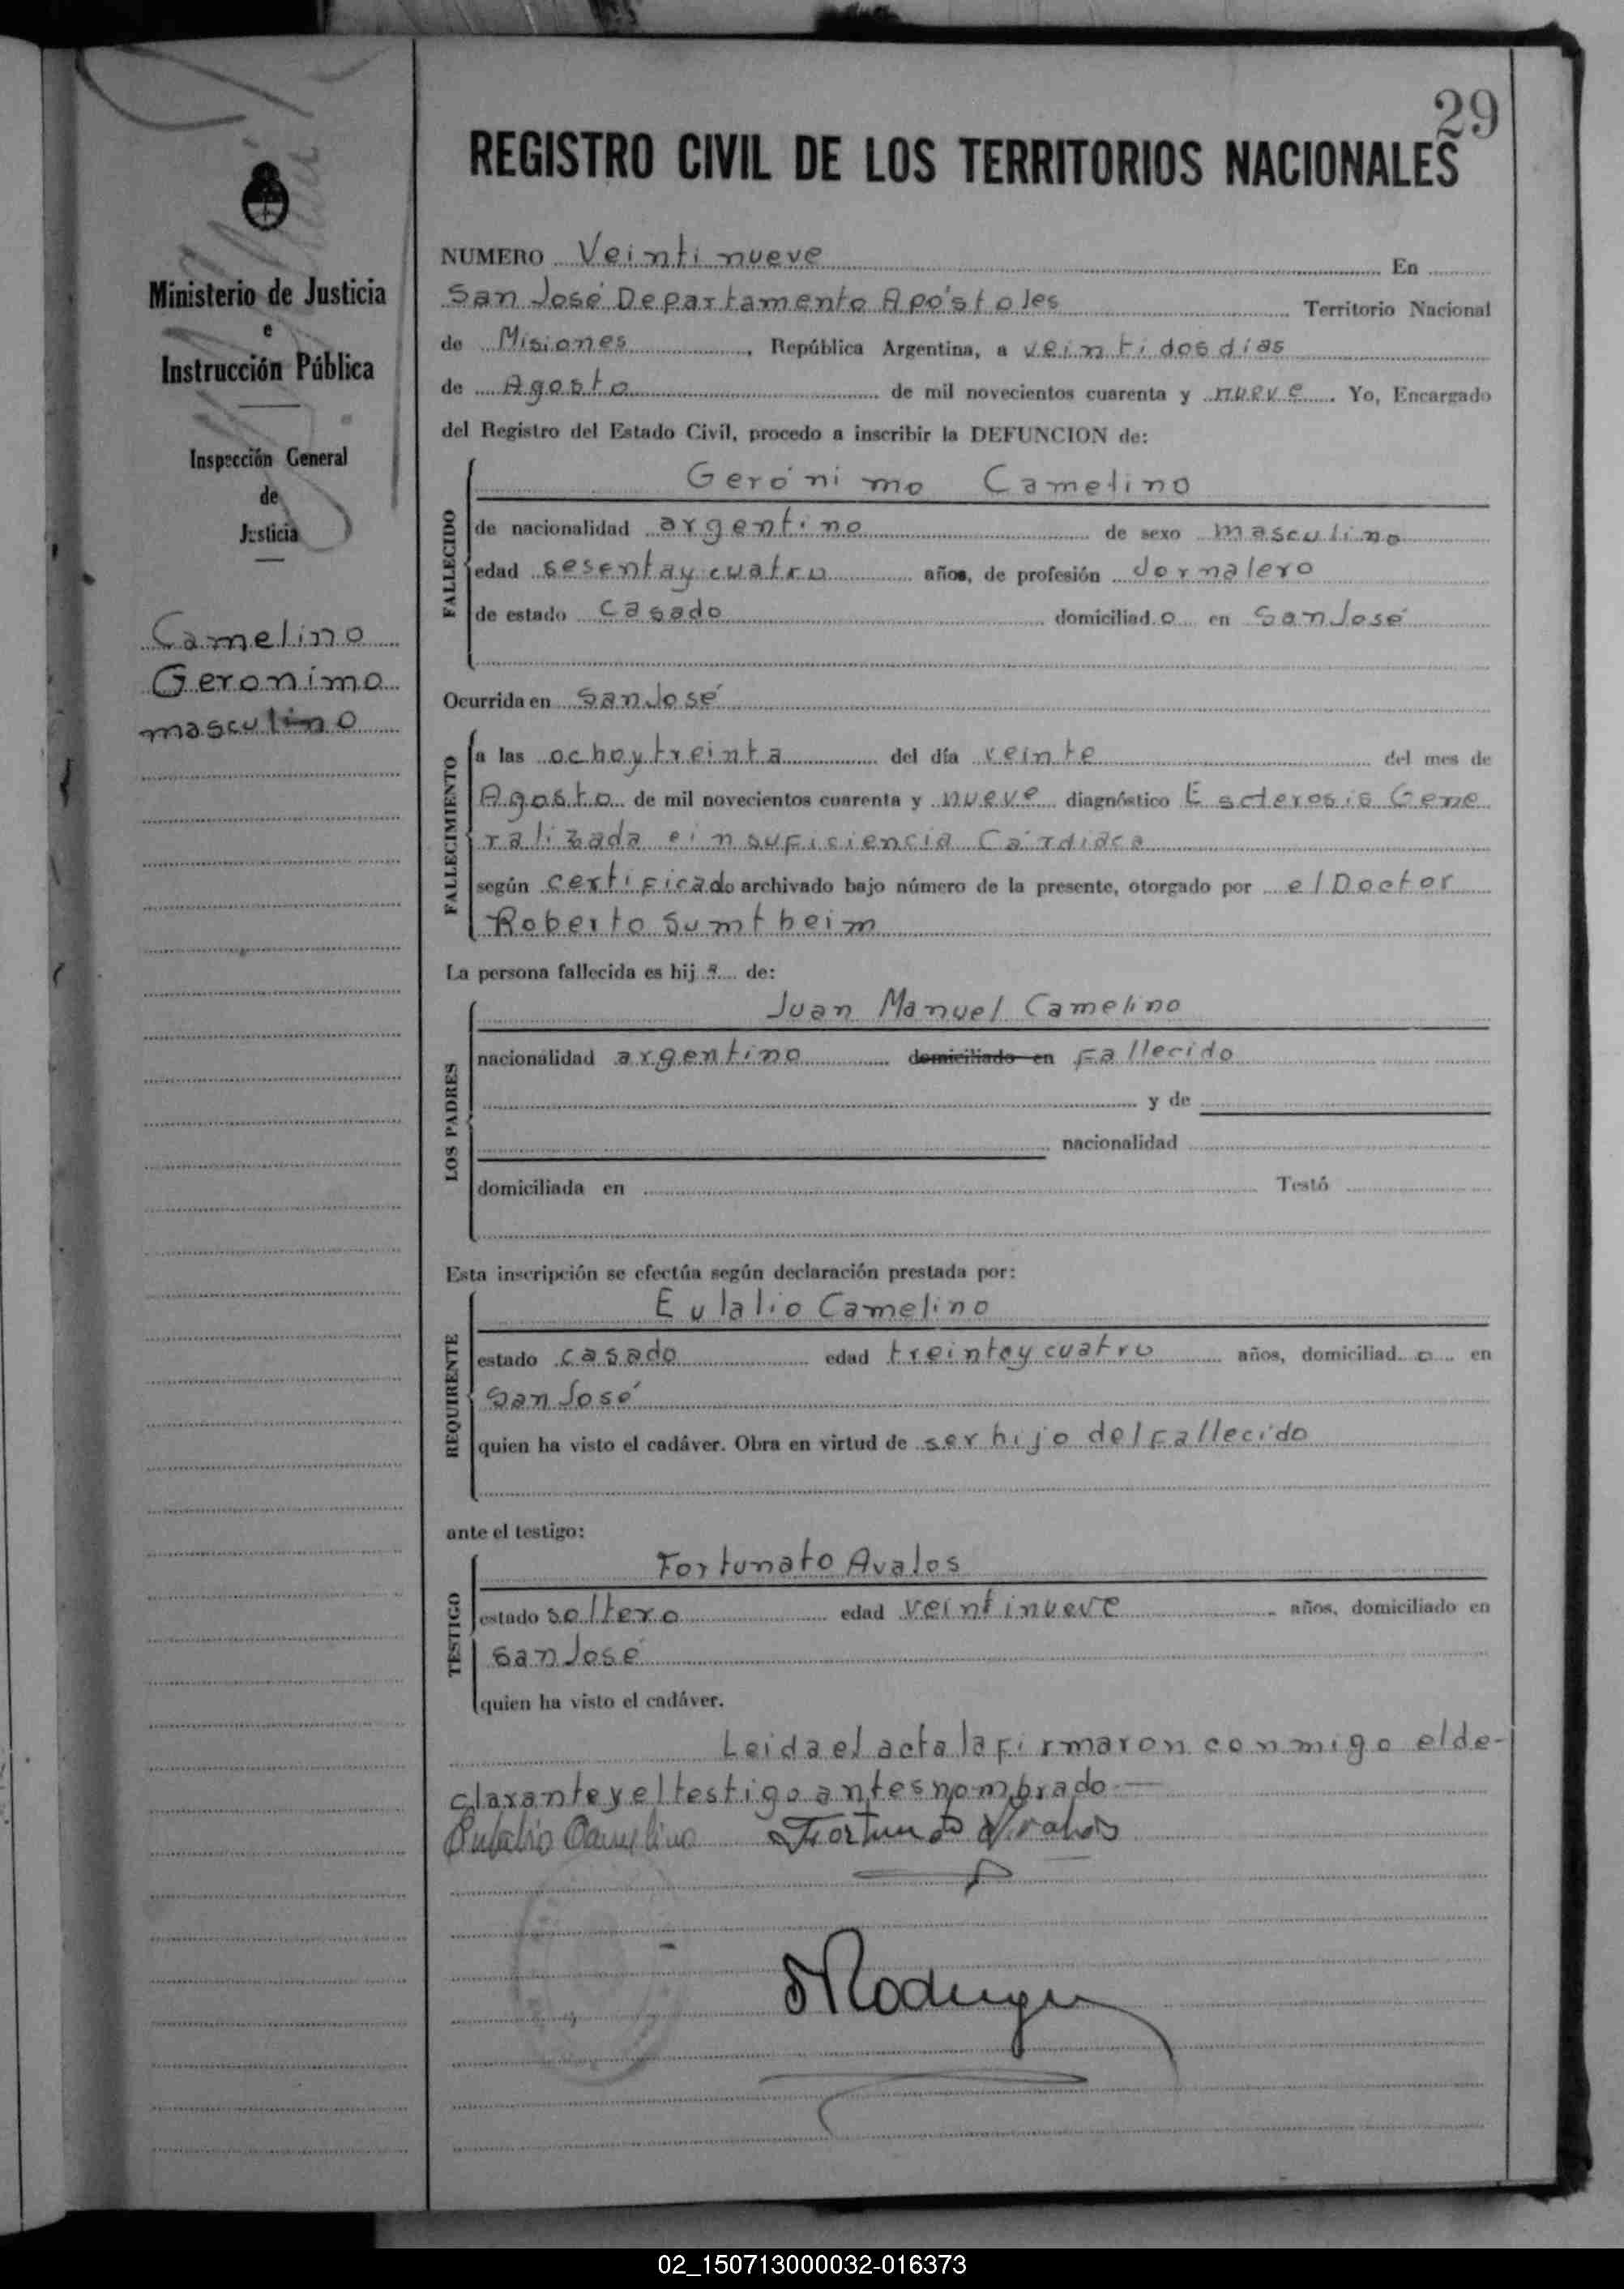 29
REGISTRO CIVIL DE LOS TERRITORIOS NACIONALES
Ministerio de Justicia
e
Instrucción Pública
Inspección General
de
Justicia
Camelino
Geronimo
masculino
NUMERO Veinti nueve En
San José Departamento Apóstoles Territorio Nacional
de Misiones, República Argentina, a veintidos días
de Agosto de mil novecientos cuarenta y nueve. Yo, Encargado
del Registro del Estado Civil, procedo a inscribir la DEFUNCION de:
FALLECIDO
Gerónimo Camelino
de nacionalidad argentino de sexo masculino
edad sesentaycuatro años, de profesión Jornalero
de estado Casado domiciliad o en San José
Ocurrida en San José
FALLECIMIENTO
a las ochoytreinta del día veinte del mes de
Agosto de mil novecientos cuarenta y nueve diagnóstico Esclerosis Gene
ralizada e insuficiencia Cárdiaca
según certificado archivado bajo número de la presente, otorgado por el Doctor
Roberto Sumtheim
La persona fallecida es hij o de:
LOS PADRES
Juan Manuel Camelino
nacionalidad argentino domiciliado en Fallecido
y de
nacionalidad
domiciliada en Testó
Esta inscripción se efectúa según declaración prestada por:
REQUIRENTE
Eulalio Camelino
estado casado edad treintaycuatro años, domiciliad o en
San José
quien ha visto el cadáver. Obra en virtud de ser hijo del fallecido
ante el testigo:
TESTIGO
Fortunato Avalos
estado soltero edad veintinueve años, domiciliado en
San José
quien ha visto el cadáver.
Leida el acta la firmaron conmigo el de-
clarante y el testigo antes nombrado.—
Eulalio Camelino Fortunato Avalos
Rodriguez
02_150713000032-016373